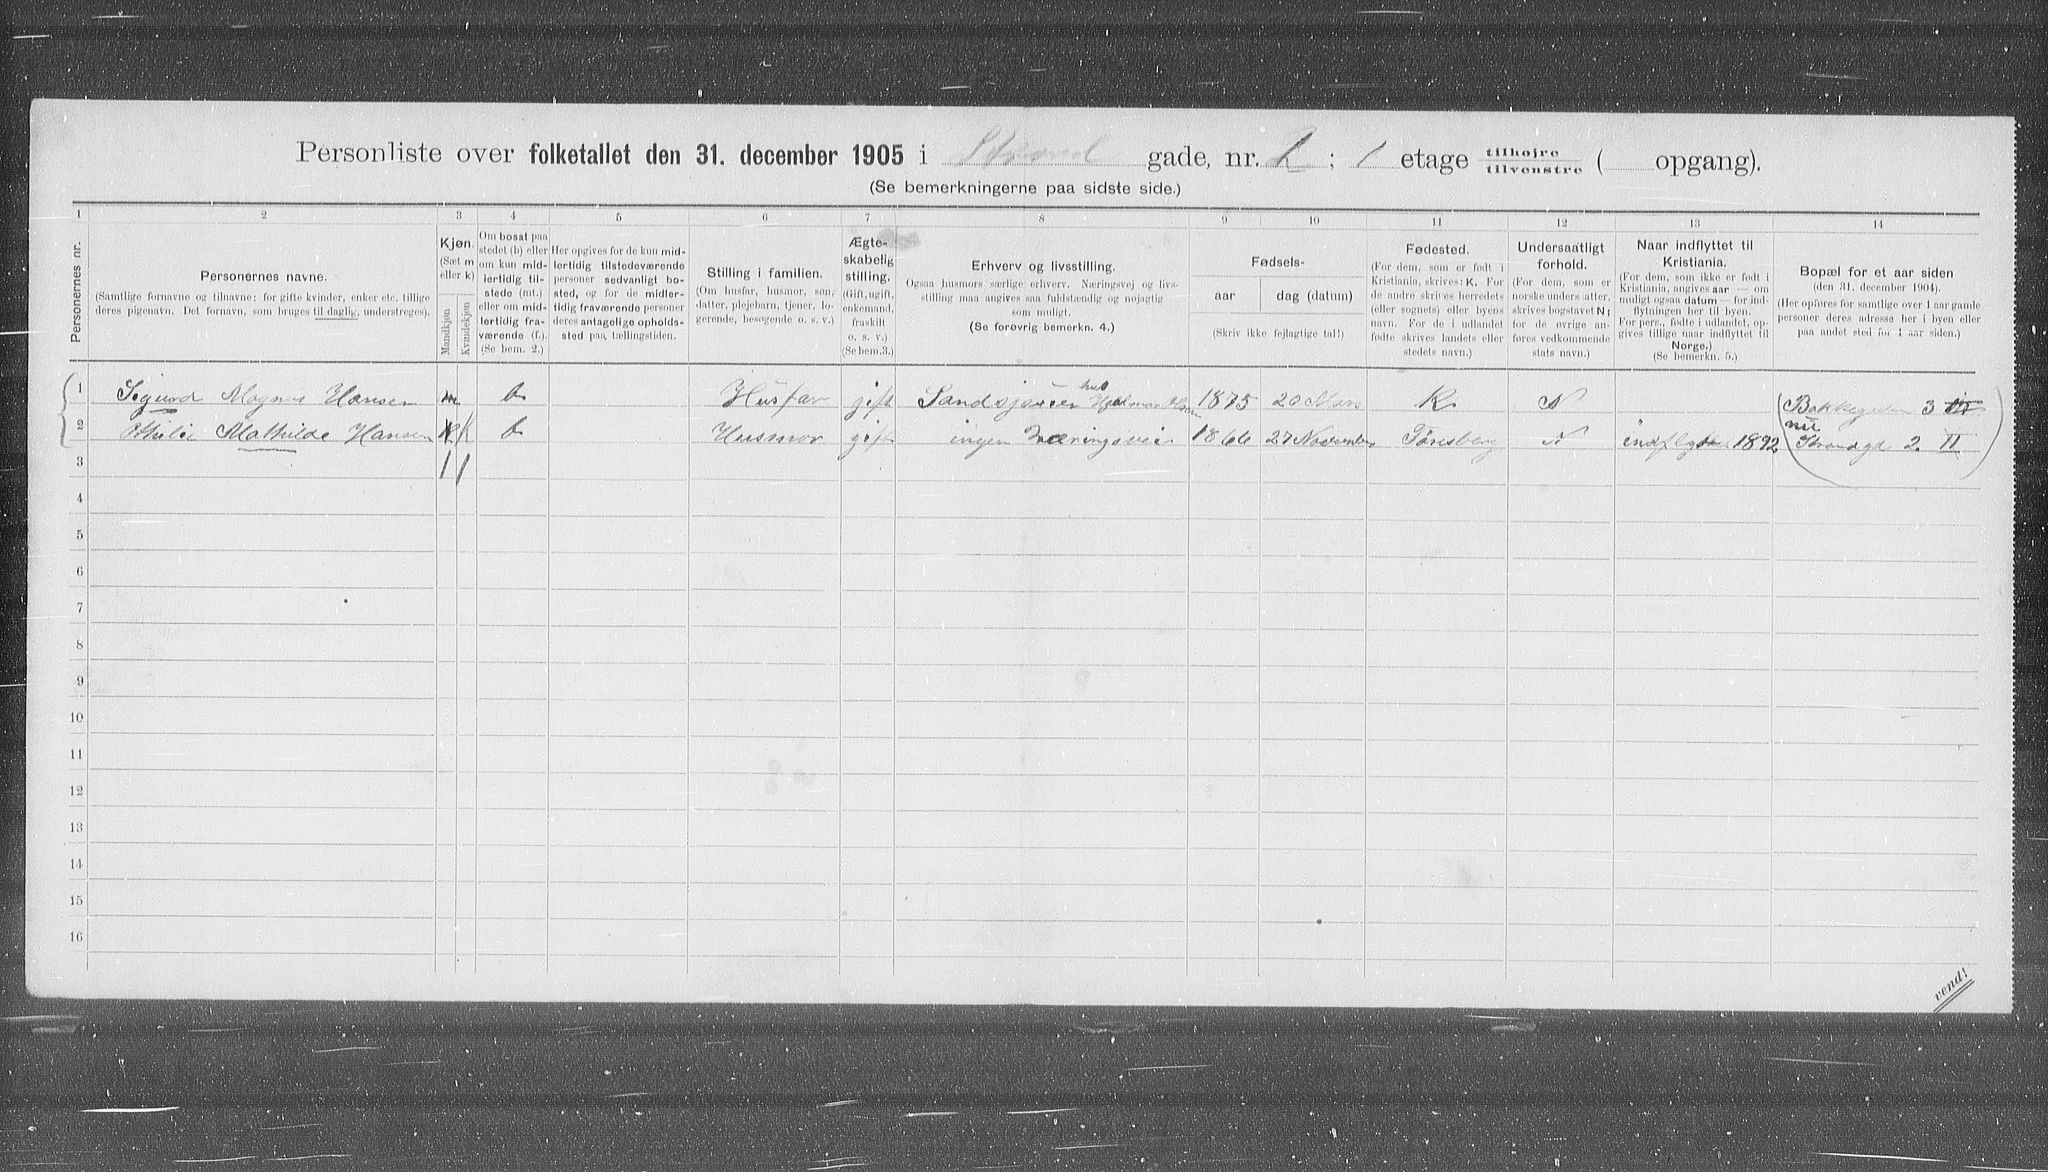 Personliste over folketallet den 31. december 1905 i Strand gade, nr. 2; 1 etage tilhøjre tilvenstre ( opgang).
(Se bemerkningerne paa sidste side.)
1 2 3 4 5 6 7 8 9 10 11 12 13 14
Personernes nr.
Personernes navne.
(Samtlige fornavne og tilnavne; for gifte kvinder, enker etc. tillige
deres pigenavn. Det fornavn, som bruges til daglig, understreges).
Kjøn.
(Sæt m
eller k)
Mandkjøn
Kvindekjøn
Om bosat paa
stedet (b) eller
om kun mid-
lertidig til-
stede (mt.)
eller om mid-
lertidig fra-
værende (f.).
(Se bem. 2.)
Her opgives for de kun mid-
lertidig tilstedeværende
personer sedvanligt bo-
sted, og for de midler-
tidig fraværende personer
deres antagelige opholds-
sted paa, tællingstiden.
Stilling i familien.
(Om husfar, husmor, søn,
datter, plejebarn, tjener, lo-
gerende, besøgende o. s. v.)
Ægte-
skabelig
stilling.
(Gift, ugift,
enkemand,
fraskilt
o. s. v.)
(Se bem. 3.)
Erhverv og livsstilling.
Ogsaa husmors særlige erhverv. Næringsvej og livs-
stilling maa angives saa fuldstændig og nøjagtig
som muligt.
(Se forøvrig bemerkn. 4.)
Fødsels-
aar dag (datum)
(Skriv ikke fejlagtige tal!)
Fødested.
(For dem, som er født i
Kristiania, skrives: K. For
de andre skrives herredets
(eller sognets) eller byens
navn. For de i udlandet
fødte skrives landets eller
stedets navn.)
Undersaatligt
forhold.
(For dem, som er
norske undersaatter,
skrives bogstavet N;
for de øvrige an-
føres vedkommende
stats navn.)
Naar indflyttet til
Kristiania.
(For dem, som ikke er født i
Kristiania, angives aar — om
muligt ogsaa datum — for ind-
flytningen her til byen.
For pers., fødte i udlandet, op-
gives tillige naar indflyttet til
Norge.)
(Se bemerkn. 5.)
Bopæl for et aar siden
(den 31. december 1904).
(Her opføres for samtlige over 1 aar gamle
personer deres adresse her i byen eller
paa andet sted for 1 aar siden.)
1 Sigurd Magnus Hansen m b Husfar gift hos Hjalmar Olsen 1875 20 Mars K N Bakkegaden 3 III
nu
2 Mathilde Hansen K K b Husmor gift ingen Næringsvei 1866 27 November Tønsberg N indflyttet 1892 Strandgd 2 II
3
4
5
6
7
8
9
10
11
12
13
14
15
16
vend!